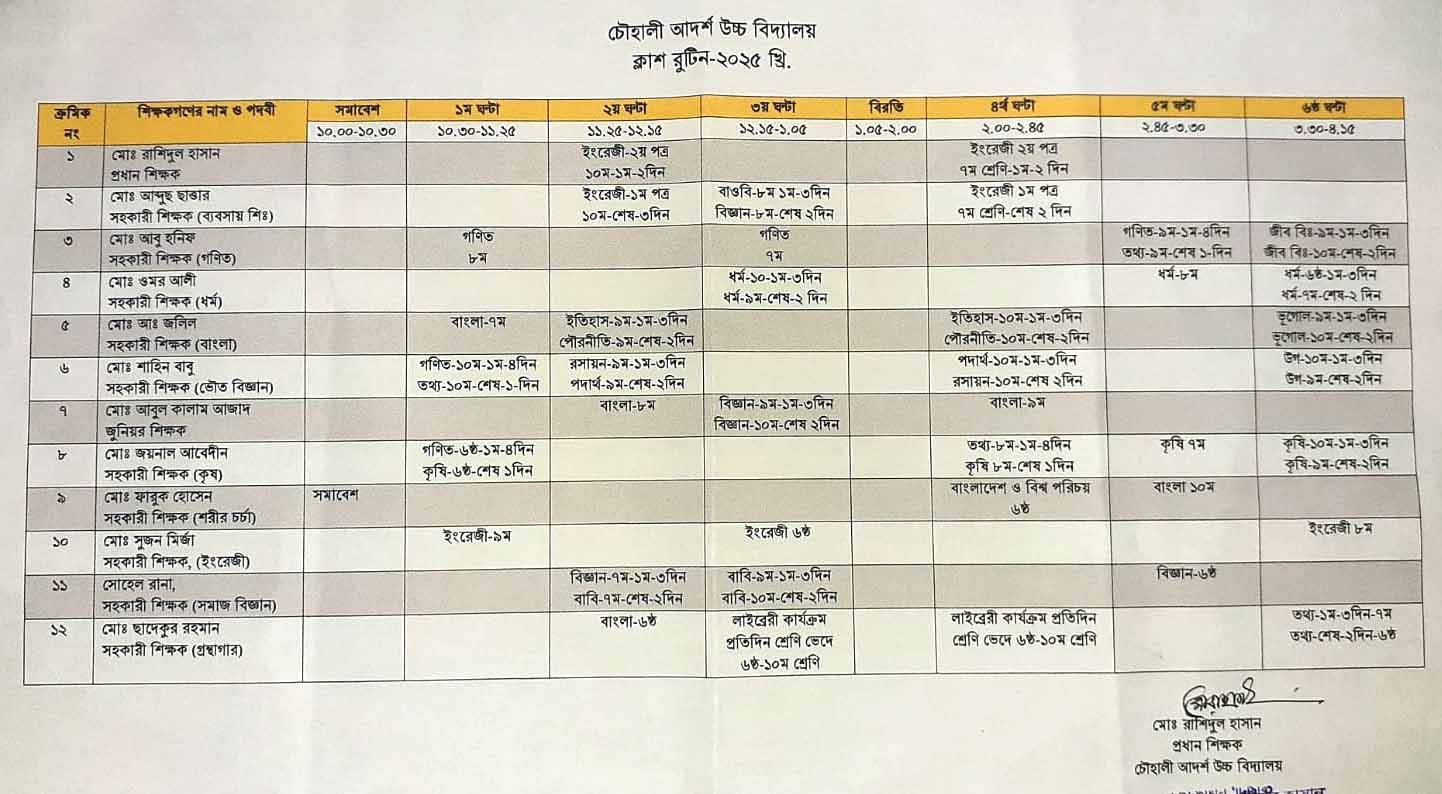 চৌহালী আদর্শ উচ্চ বিদ্যালয়
ক্লাশ রুটিন-২০২৫ খ্রি.
ক্রমিক নং | শিক্ষকগণের নাম ও পদবী | সমাবেশ | ১ম ঘন্টা | ২য় ঘন্টা | ৩য় ঘন্টা | বিরতি | ৪র্থ ঘন্টা | ৫ম ঘন্টা | ৬ষ্ঠ ঘন্টা
১০.০০-১০.৩০ | ১০.৩০-১১.২৫ | ১১.২৫-১২.১৫ | ১২.১৫-১.০৫ | ১.০৫-২.০০ | ২.০০-২.৪৫ | ২.৪৫-৩.৩০ | ৩.৩০-৪.১৫
১ | মোঃ রাশিদুল হাসান | ইংরেজী-২য় পত্র | ইংরেজী ২য় পত্র
প্রধান শিক্ষক | ১০ম-১ম-২দিন | ৭ম শ্রেণি-১ম-২ দিন
২ | মোঃ আব্দুছ ছাত্তার | ইংরেজী-১ম পত্র | বাওবি-৮ম ১ম-৩দিন | ইংরেজী ১ম পত্র
সহকারী শিক্ষক (ব্যবসায় শিঃ) | ১০ম-শেষ-৩দিন | বিজ্ঞান-৮ম-শেষ ২দিন | ৭ম শ্রেণি-শেষ ২ দিন
৩ | মোঃ আবু হনিফ | গণিত | গণিত | গণিত-৯ম-১ম-৪দিন | জীব বিঃ-৯ম-১ম-৩দিন
সহকারী শিক্ষক (গণিত) | ৮ম | ৭ম | তথ্য-৯ম-শেষ ১-দিন | জীব বিঃ-১০ম-শেষ-২দিন
৪ | মোঃ ওমর আলী | ধর্ম-১০-১ম-৩দিন | ধর্ম-৮ম | ধর্ম-৬ষ্ঠ-১ম-৩দিন
সহকারী শিক্ষক (ধর্ম) | ধর্ম-৯ম-শেষ-২ দিন | ধর্ম-৭ম-শেষ-২ দিন
৫ | মোঃ আঃ জলিল | বাংলা-৭ম | ইতিহাস-৯ম-১ম-৩দিন | ইতিহাস-১০ম-১ম-৩দিন | ভূগোল-৯ম-১ম-৩দিন
সহকারী শিক্ষক (বাংলা) | পৌরনীতি-৯ম-শেষ-২দিন | পৌরনীতি-১০ম-শেষ-২দিন | ভূগোল-১০ম-শেষ-২দিন
৬ | মোঃ শাহিন বাবু | গণিত-১০ম-১ম-৪দিন | রসায়ন-৯ম-১ম-৩দিন | পদার্থ-১০ম-১ম-৩দিন | উগ-১০ম-১ম-৩দিন
সহকারী শিক্ষক (ভৌত বিজ্ঞান) | তথ্য-১০ম-শেষ-১-দিন | পদার্থ-৯ম-শেষ-২দিন | রসায়ন-১০ম-শেষ ২দিন | উগ-৯ম-শেষ-২দিন
৭ | মোঃ আবুল কালাম আজাদ | বাংলা-৮ম | বিজ্ঞান-৯ম-১ম-৩দিন | বাংলা-৯ম
জুনিয়র শিক্ষক | বিজ্ঞান-১০ম-শেষ ২দিন
৮ | মোঃ জয়নাল আবেদীন | গণিত-৬ষ্ঠ-১ম-৪দিন | তথ্য-৮ম-১ম-৪দিন | কৃষি ৭ম | কৃষি-১০ম-১ম-৩দিন
সহকারী শিক্ষক (কৃষ) | কৃষি-৬ষ্ঠ-শেষ ১দিন | কৃষি ৮ম-শেষ ১দিন | কৃষি-৯ম-শেষ-২দিন
৯ | মোঃ ফারুক হোসেন | সমাবেশ | বাংলাদেশ ও বিশ্ব পরিচয় | বাংলা ১০ম
সহকারী শিক্ষক (শরীর চর্চা) | ৬ষ্ঠ
১০ | মোঃ সুজন মির্জা | ইংরেজী-৯ম | ইংরেজী ৬ষ্ঠ | ইংরেজী ৮ম
সহকারী শিক্ষক, (ইংরেজী)
১১ | সোহেল রানা, | বিজ্ঞান-৭ম-১ম-৩দিন | বাবি-৯ম-১ম-৩দিন | বিজ্ঞান-৬ষ্ঠ
সহকারী শিক্ষক (সমাজ বিজ্ঞান) | বাবি-৭ম-শেষ-২দিন | বাবি-১০ম-শেষ-২দিন
১২ | মোঃ ছাদেকুর রহমান | বাংলা-৬ষ্ঠ | লাইব্রেরী কার্যক্রম | লাইব্রেরী কার্যক্রম প্রতিদিন | তথ্য-১ম-৩দিন-৭ম
সহকারী শিক্ষক (গ্রন্থাগার) | প্রতিদিন শ্রেণি ভেদে | শ্রেণি ভেদে ৬ষ্ঠ-১০ম শ্রেণি | তথ্য-শেষ-২দিন-৬ষ্ঠ
৬ষ্ঠ-১০ম শ্রেণি
মোঃ রাশিদুল হাসান
প্রধান শিক্ষক
চৌহালী আদর্শ উচ্চ বিদ্যালয়